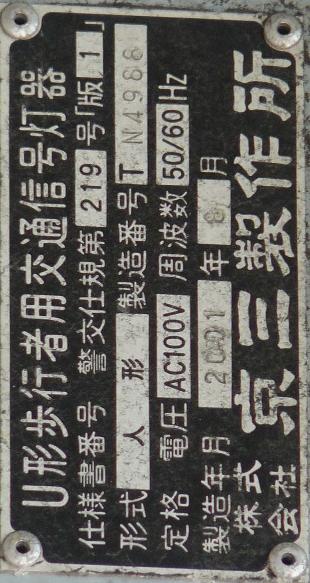 U形歩行者用交通信号灯器
仕様書番号 警交仕規第 219 号「版 1」
形式 人形 製造番号 T N4988
定格 電圧 AC100V 周波数 50/60 Hz
製造年月 2001 年 月
株式会社 京三製作所